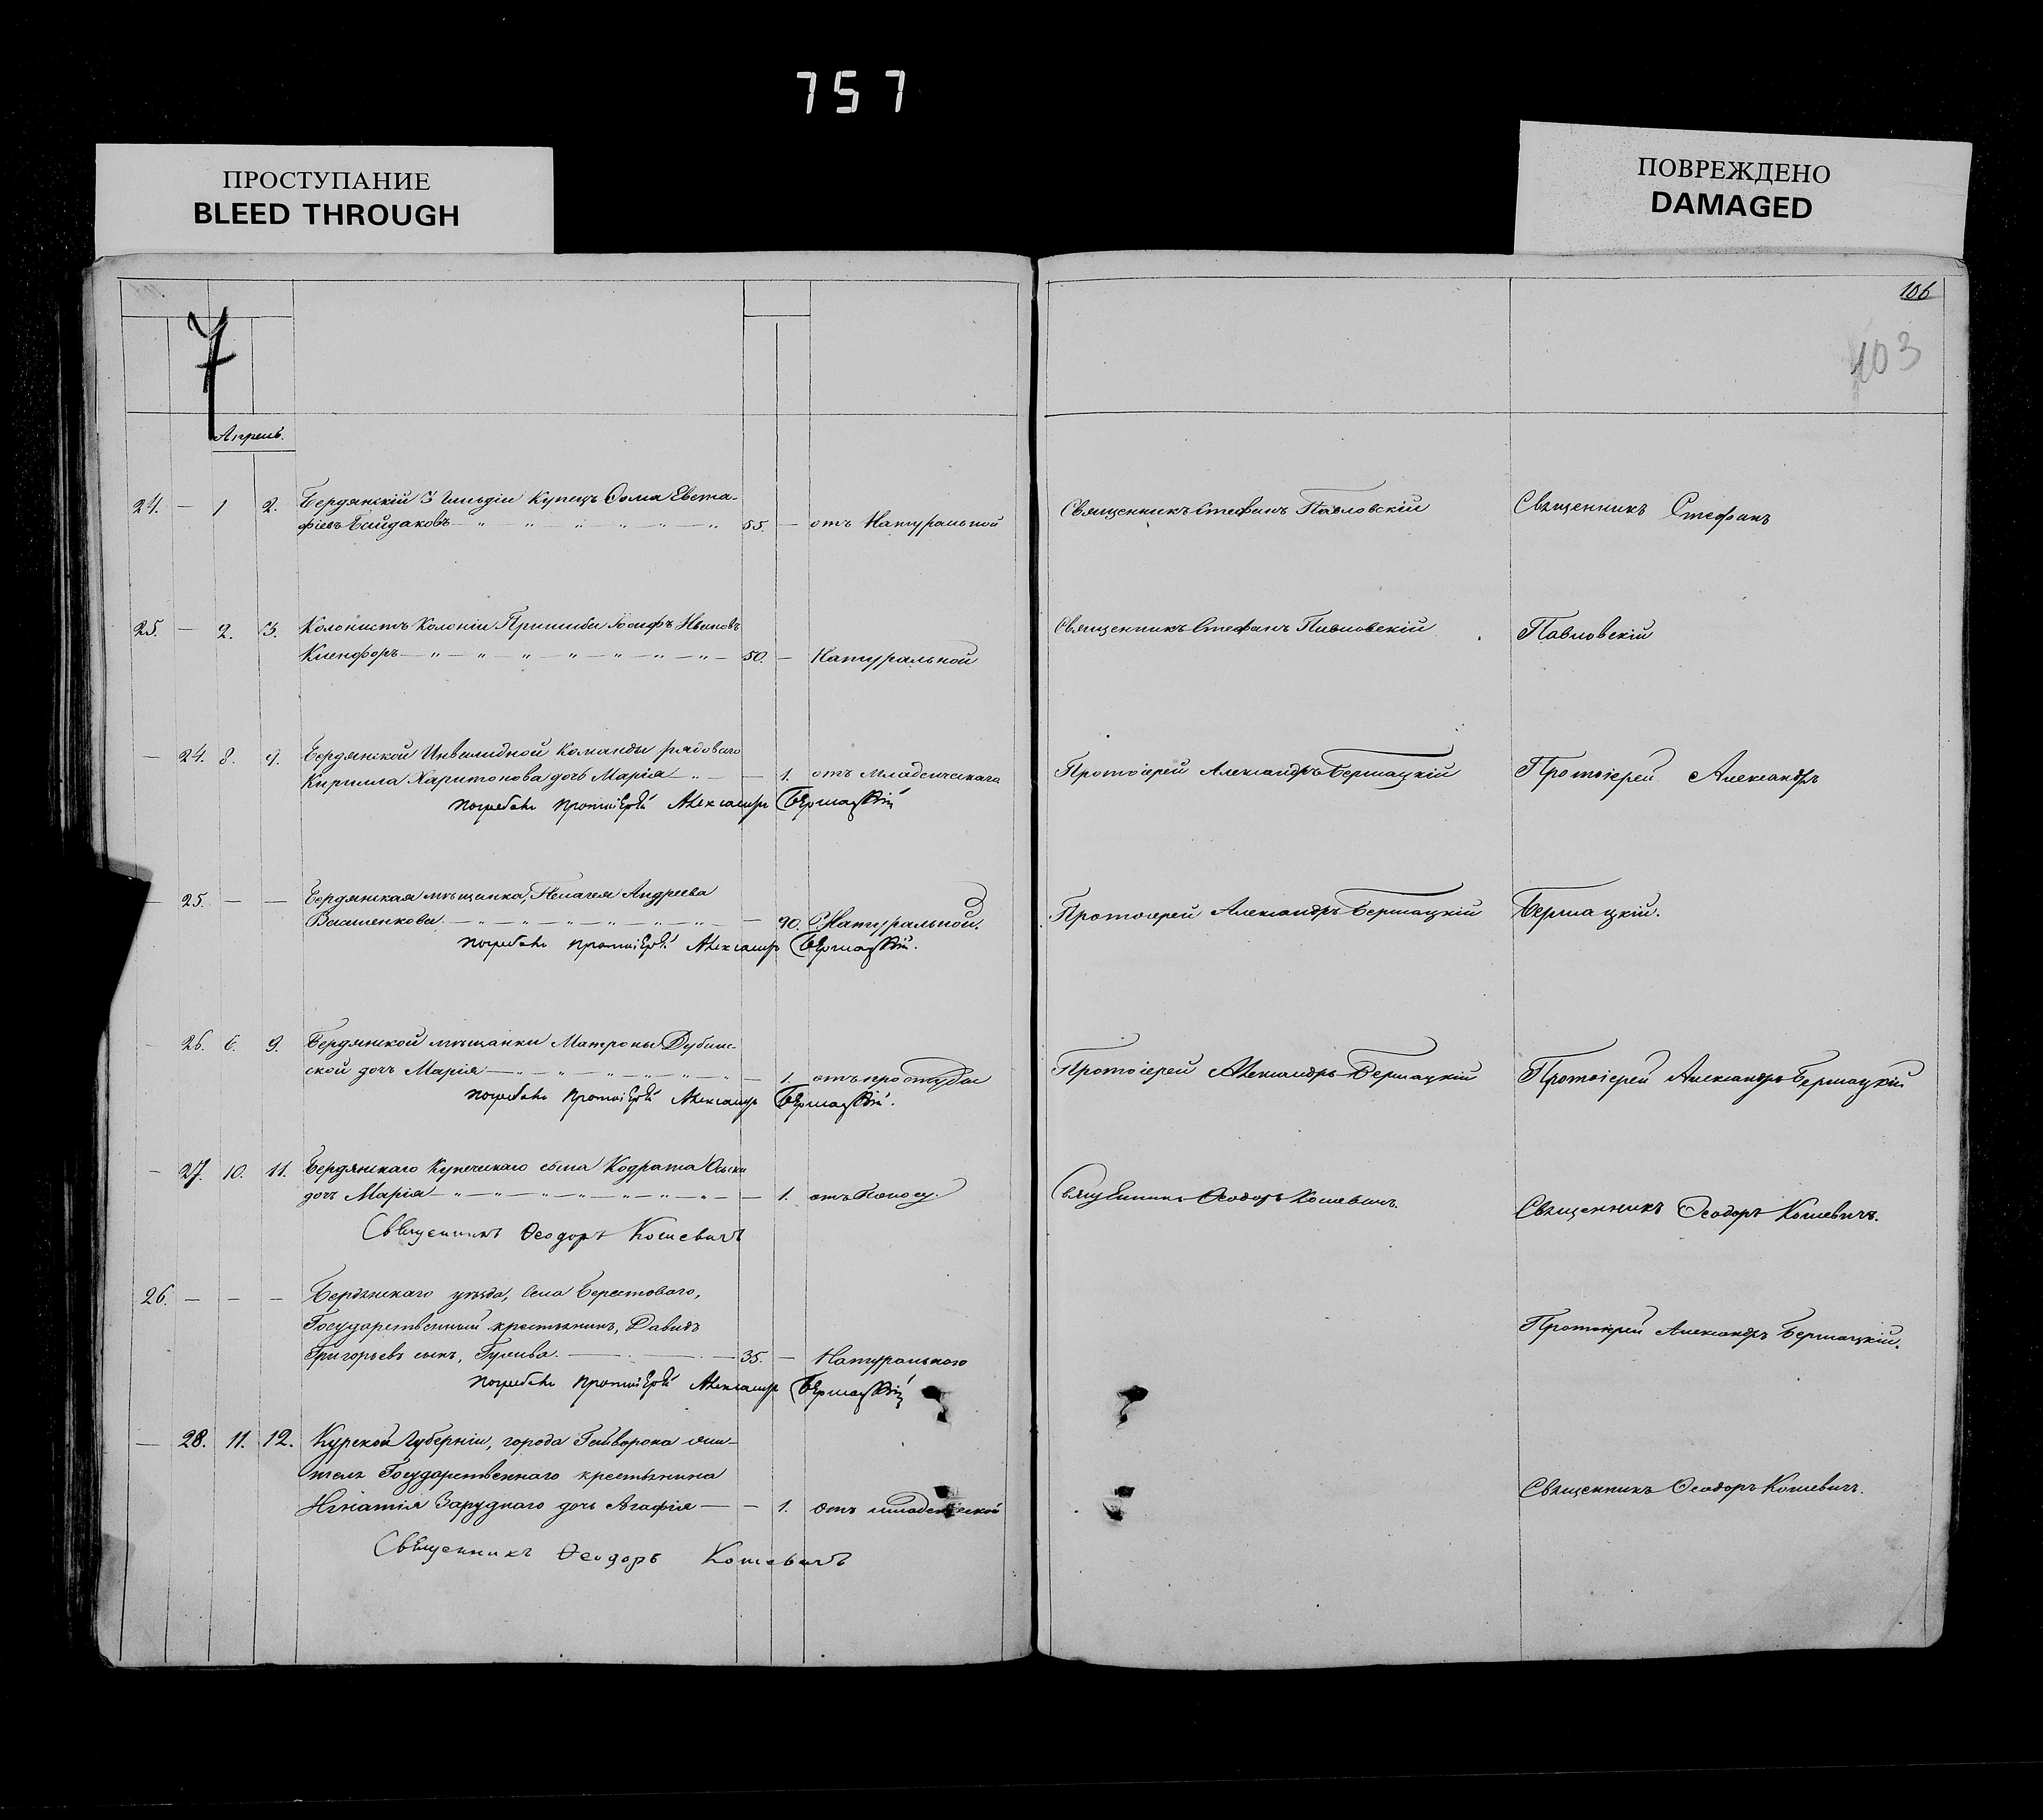 757
ПРОСТУПАНИЕ
BLEED THROUGH
ПОВРЕЖДЕНО
DAMAGED
7
106
103
Апрель.
24. — 1 2. Бердянскій 3 Гильдіи Купецъ Ѳома Евста-
фіевъ Байдаковъ — 55. — отъ Натуральной
Священникъ Стефанъ Павловскій
Священникъ Стефанъ
25. — 2. 3. Колонистъ Колоніи Пришибъ Іосифъ Ивановъ
— 50. — Натуральной
Священникъ Стефанъ Павловскій
Павловскій
— 24. 8. 9. Бердянской Инвалидной Команды рядоваго
Кирилла Харитонова дочь Марія — 1. отъ младенческаго
погребалъ протоіерей Александръ Бермацкій
Протоіерей Александръ Бермацкій
Протоіерей Александръ
— 25. — — Бердянская мѣщанка, Пелагея Андреева
— 90. Натуральной.
погребалъ протоіерей Александръ Бермацкій.
Протоіерей Александръ Бермацкій
Бермацкій.
— 26. 6. 9. Бердянской мѣщанки Матроны Дубин-
ской дочь Марія — 1. отъ простуды
погребалъ протоіерей Александръ Бермацкій.
Протоіерей Александръ Бермацкій
Протоіерей Александръ Бермацкій
— 27. 10. 11. Бердянскаго Купеческаго сына Кодрата
дочь Марія — 1. отъ Поносу.
Священникъ Ѳеодоръ Кошевичъ
Священникъ Ѳеодоръ Кошевичъ.
Священникъ Ѳеодоръ Кошевичъ.
26. — — — Бердянскаго уѣзда, села Берестоваго,
Государственный крестьянинъ, Давидъ
Григорьевъ сынъ, — 35. — Натуральною
погребалъ протоіерей Александръ Бермацкій
Протоіерей Александръ Бермацкій.
— 28. 11. 12. Курской Губерніи, города Гайворока жи-
тель Государственнаго крестьянина
Игнатія Заруднаго дочь Агафія — 1. отъ младенческой
Священникъ Ѳеодоръ Кошевичъ
Священникъ Ѳеодоръ Кошевичъ.